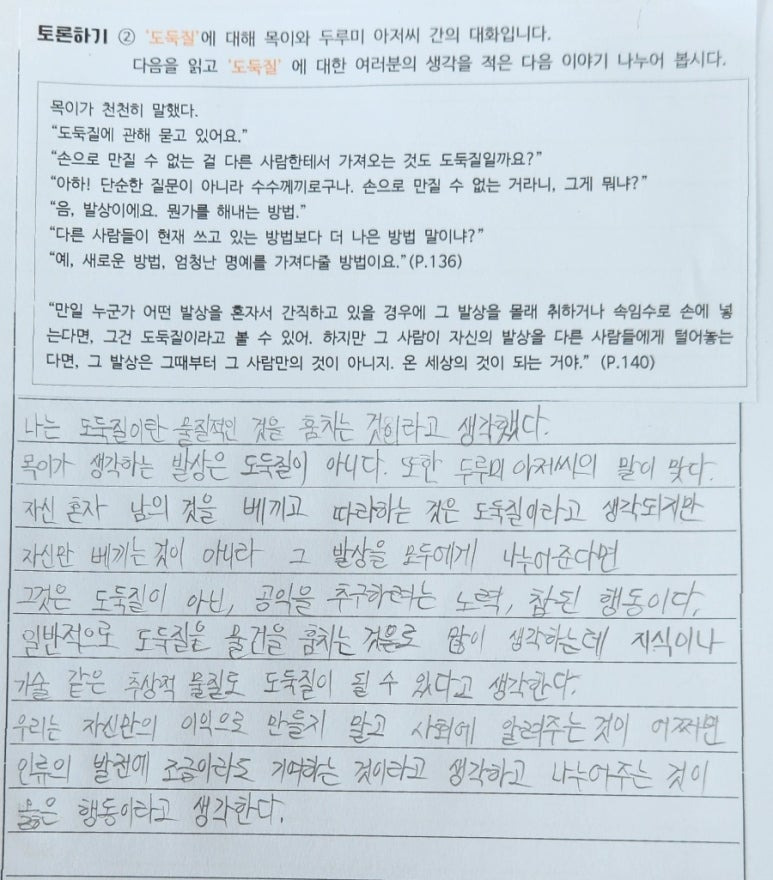 토론하기 ② '도둑질'에 대해 목이와 두루미 아저씨 간의 대화입니다.
다음을 읽고 '도둑질' 에 대한 여러분의 생각을 적은 다음 이야기 나누어 봅시다.
목이가 천천히 말했다.
“도둑질에 관해 묻고 있어요.”
“손으로 만질 수 없는 걸 다른 사람한테서 가져오는 것도 도둑질일까요?”
“아하! 단순한 질문이 아니라 수수께끼로구나. 손으로 만질 수 없는 거라니, 그게 뭐냐?”
“음, 발상이에요. 뭔가를 해내는 방법.”
“다른 사람들이 현재 쓰고 있는 방법보다 더 나은 방법 말이냐?”
“예, 새로운 방법, 엄청난 명예를 가져다줄 방법이요.”(P.136)
“만일 누군가 어떤 발상을 혼자서 간직하고 있을 경우에 그 발상을 몰래 취하거나 속임수로 손에 넣
는다면, 그건 도둑질이라고 볼 수 있어. 하지만 그 사람이 자신의 발상을 다른 사람들에게 털어놓는
다면, 그 발상은 그때부터 그 사람만의 것이 아니지. 온 세상의 것이 되는 거야.” (P.140)
나는 도둑질이란 물질적인 것을 훔치는 것이라고 생각했다.
목이가 생각하는 발상은 도둑질이 아니다. 또한 두루미 아저씨의 말이 맞다.
자신 혼자 남의 것을 베끼고 따라하는 것은 도둑질이라고 생각되지만
자신만 베끼는 것이 아니라 그 발상을 모두에게 나누어준다면
그것은 도둑질이 아닌, 공익을 추구하려는 노력, 참된 행동이다.
일반적으로 도둑질을 물건을 훔치는 것을로 많이 생각하는데 지식이나
기술 같은 추상적 물질도 도둑질이 될 수 있다고 생각한다.
우리는 자신만의 이익으로 만들지 말고 사회에 알려주는 것이 어쩌면
인류의 발전에 조금이라도 기여하는 것이라고 생각하고 나누어주는 것이
옳은 행동이라고 생각한다.